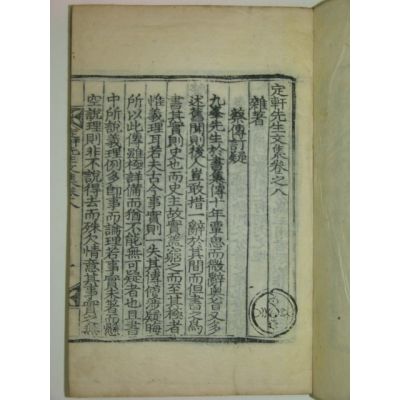 定軒先生文集卷之八
雜著
蔡傳訂疑
九峯先生於書集傳十年覃思而微辭奧旨又多
述舊聞則後人豈敢措一辭於其間而但書之爲
書其實則史也而史主故實窮之而至其極者
惟義理耳若夫古今事實則一失其傳疑晦
所以此傳雖極詳備而猶不能無可疑者也且書
中所說義理例多卽事而論理若事實未著而懸
空說理則非不說得去而殊欠情意其事實之無